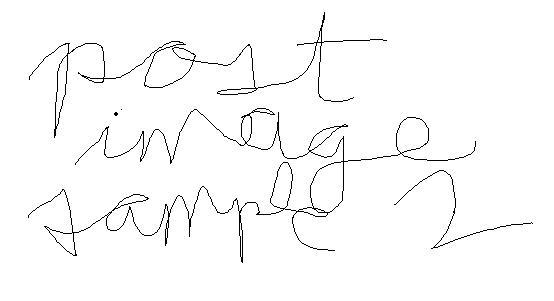 post
image
sample 2